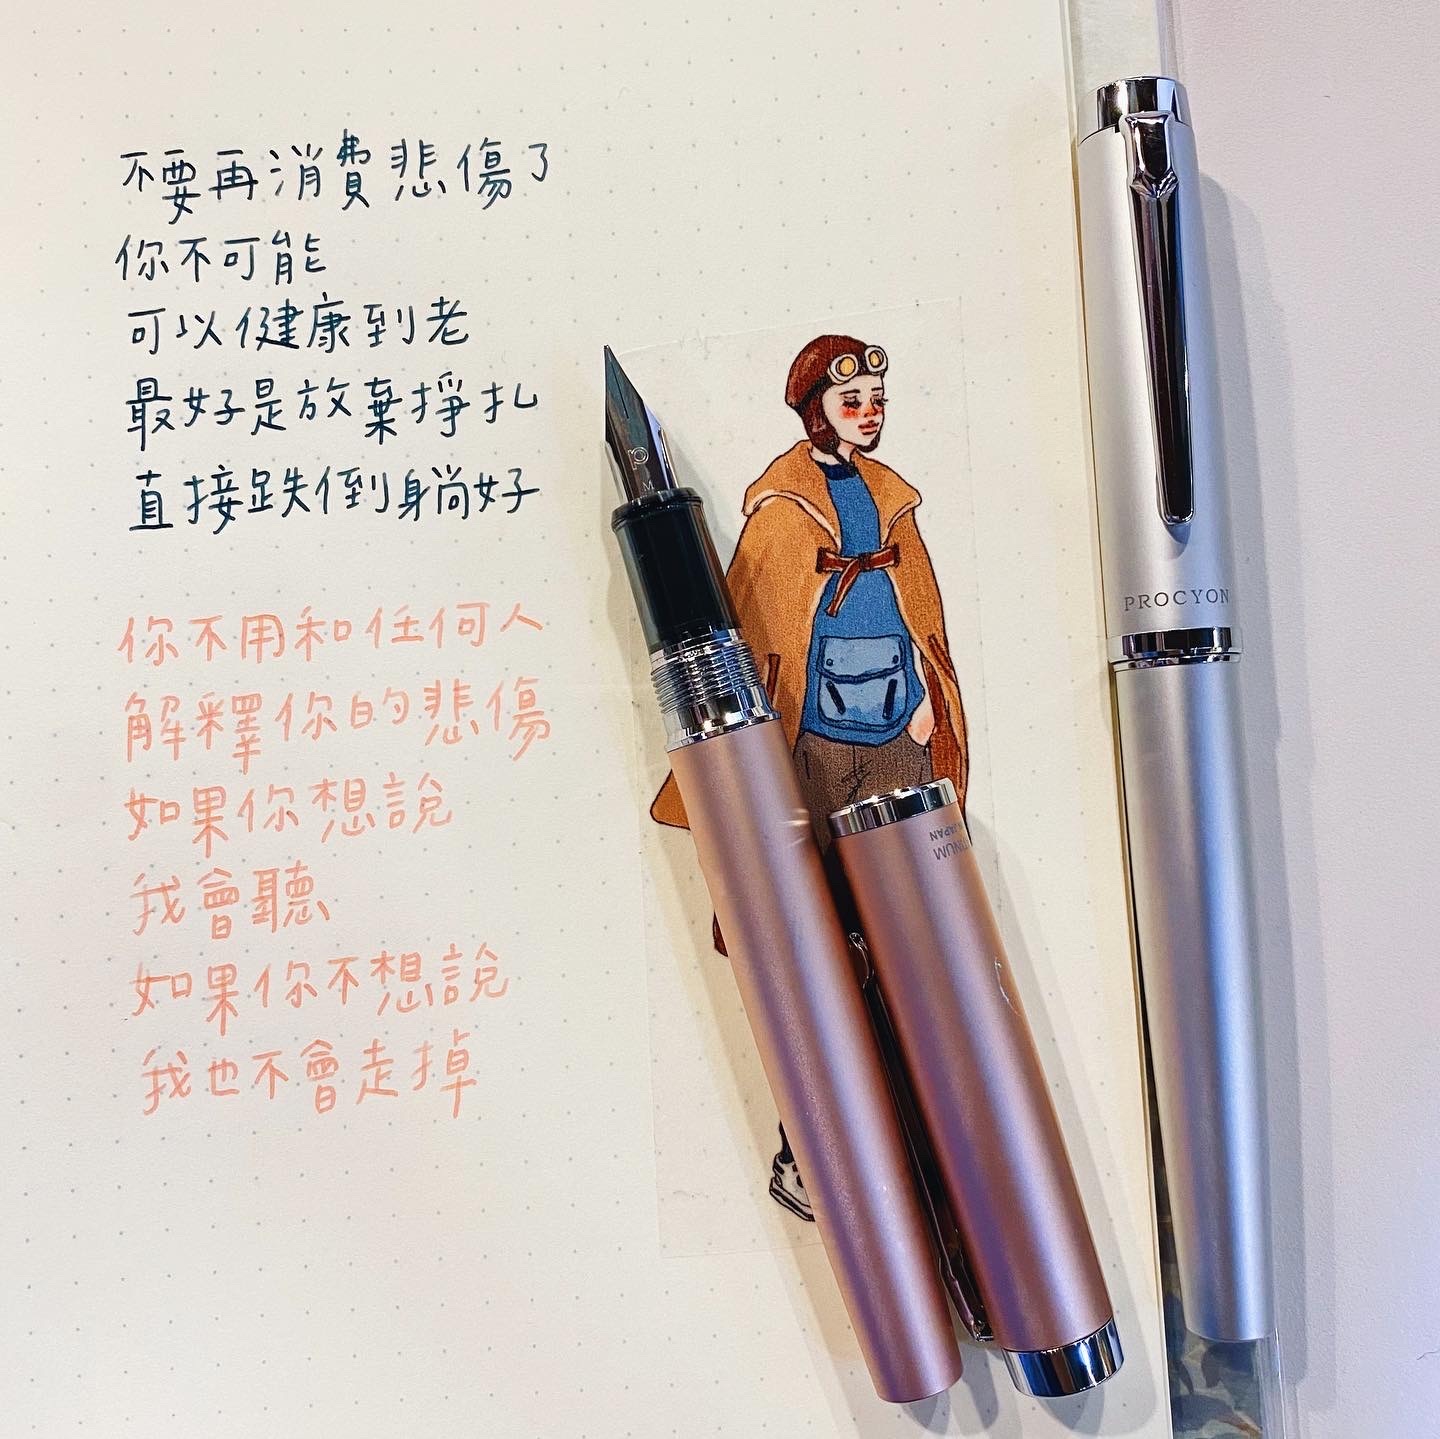 不要再消費悲傷了
你不可能
可以健康到老
最好是放棄掙扎
直接跌倒躺好
你不用和任何人
解釋你的悲傷
如果你想說
我會聽
如果你不想說
我也不會走掉
P
M
PROCYON
JAPAN